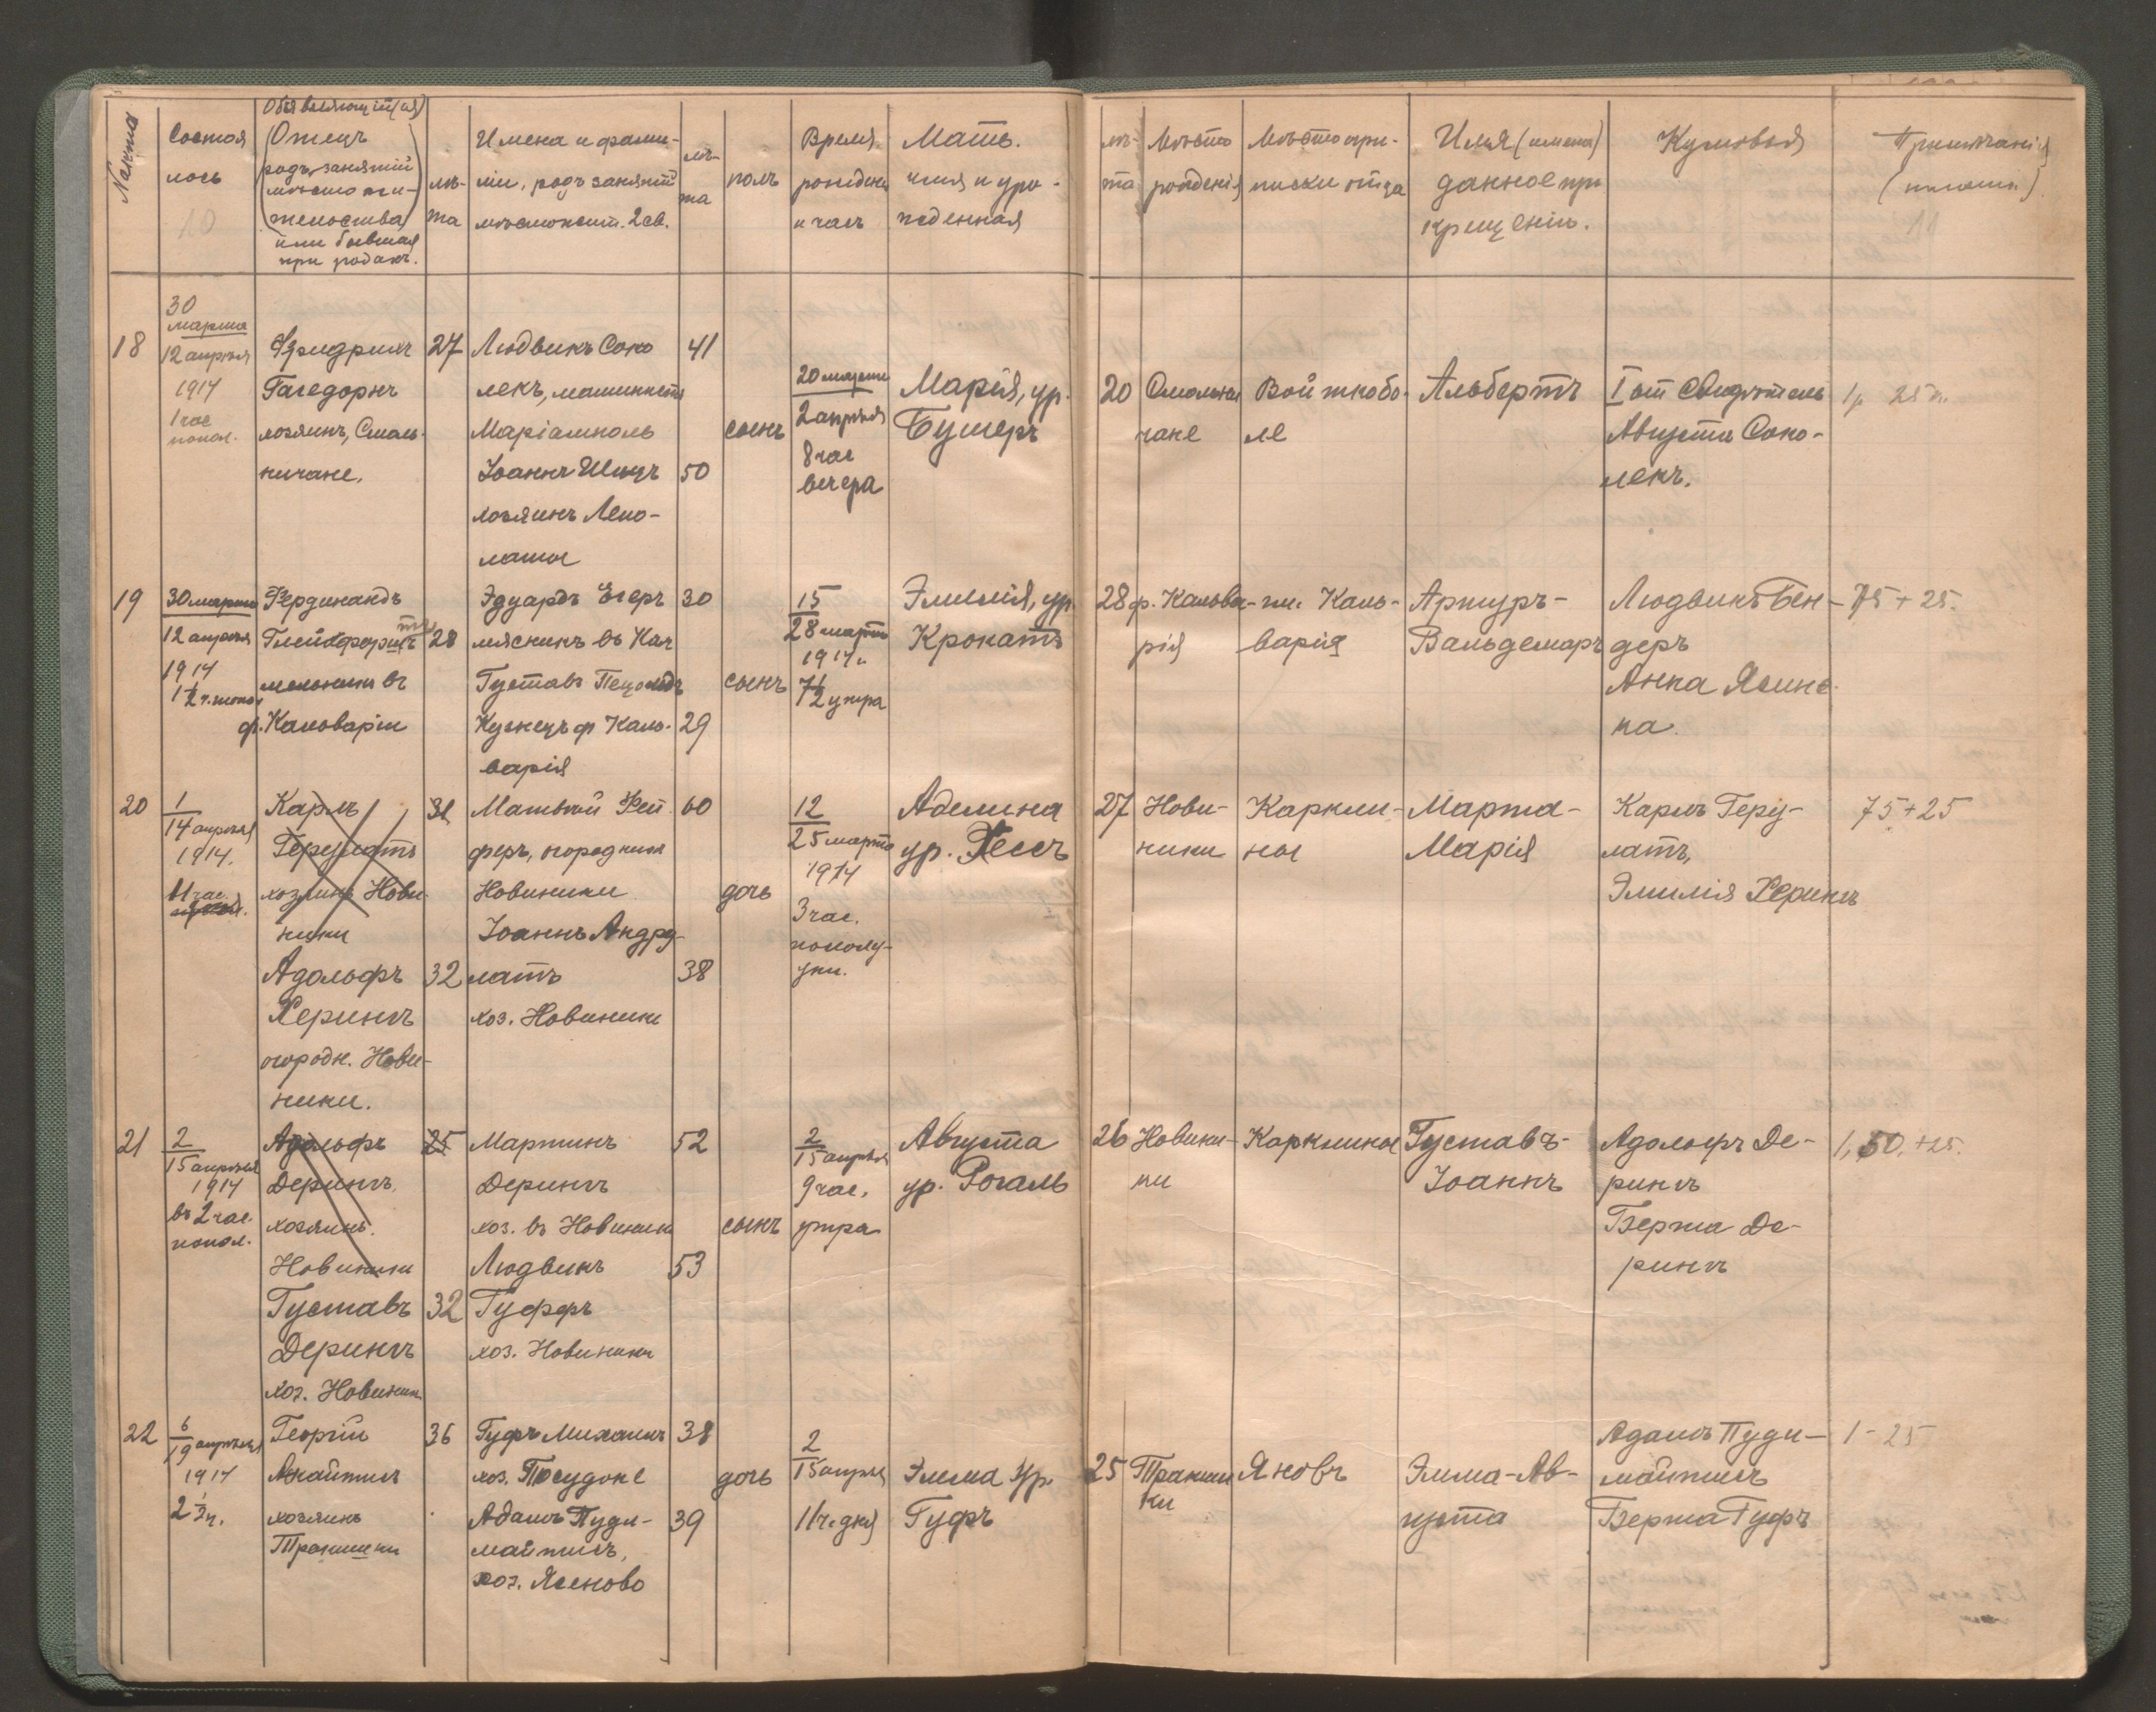 № акта
Состоя
лось
10
Объявляющій(ая)
(Отецъ
родъ занятій
мѣсто жи-
тельства)
или бывшая
при родахъ.
лѣ-
та
Имена и фами-
ліи, родъ занятій
мѣстожит. 2 св.
лѣ-
та
полъ
Время
рожденія
и часъ
Мать.
имя и уро-
жденная
лѣ-
та
Мѣсто
рожденія
Мѣсто при-
писки отца
Имя (имена)
данное при
крещеніи.
Кумовья
Примѣчанія
11
18
30
марта
12 апрѣля
1914
1 час
попол.
Фридрихъ
Гагедорнъ
хозяинъ, Смоль-
ничане.
27
Людвикъ Соко
лекъ, машинистъ
Маріамполь
Іоаннъ Шицъ
хозяинъ Лепо-
латы
41
50
сынъ
20 марта
2 апрѣля
8 час
вечера
Марія, ур.
Бушеръ
20
Смольни
чане
Войткобо-
ле
Альбертъ
I ый Свидѣтель
Августа Соко-
лекъ.
1 р 25 к.
19
30 марта
12 апрѣля
1914
1 1/2 ч. попол
Фердинандъ
Глейхфорштъ
мельникъ въ
ф. Кальваріи
28
Эдуардъ Егеръ
мясникъ въ Кал
Густавъ Пецольдъ
Кузнецъ ф Каль-
варія
30
29
сынъ
15
28 марта
1914
7 1/2 утра
Эмилія, ур.
Кронатъ
28
ф. Кальва-
рія
гм. Каль-
варія
Артуръ-
Вальдемаръ
Людвикъ Бен-
деръ
Анна Ясинс-
ка.
75 + 25.
20
1
14 апрѣля
1914.
11 час.
Карлъ
Герулатъ
хозяинъ Нови
ники
Адольфъ
Херингъ
огородн. Нови-
ники.
31
32
Матвѣй Фей
феръ, огородникъ
Новиники
Іоаннъ Андру-
латъ
хоз. Новиники
60
38
дочь
12
25 марта
1914
3 час.
пополу-
дни.
Аделина
ур. Хессъ
27
Нови-
ники
Каркли-
ны
Марта-
Марія
Карлъ Геру-
латъ,
Эмилія Херингъ
75 + 25
21
2
15 апрѣля
1914
въ 2 час.
попол.
Адольфъ
Дерингъ,
хозяинъ.
Новиники
Густавъ
Дерингъ
хоз. Новиники
25
32
Мартинъ
Дерингъ
хоз. въ Новиники
Людвикъ
Гуффъ
хоз. Новиники
52
53
сынъ
2
15 апрѣля
9 час.
утра
Августа
ур. Рогаль
26
Новини-
ки
Карклины
Густавъ-
Іоаннъ
Адольфъ Де-
рингъ
Берта Де-
рингъ
1,50.+25.
22
6
19 апрѣля
1914
2 1/2 ч.
Георгій
хозяинъ
Тракишки
36
Гуфъ Михаилъ
хоз. Посудоне
Адамъ Пуди-
майтисъ,
хоз. Ясеново
38
39
дочь
2
15 апрѣля
11 ч. дня
Эмма Ур.
Гуфъ
25
Тракиш
ки
Яновъ
Эмма-Ав-
густа
Адамъ Пуди-
майтисъ
Берта Гуфъ
1 - 25